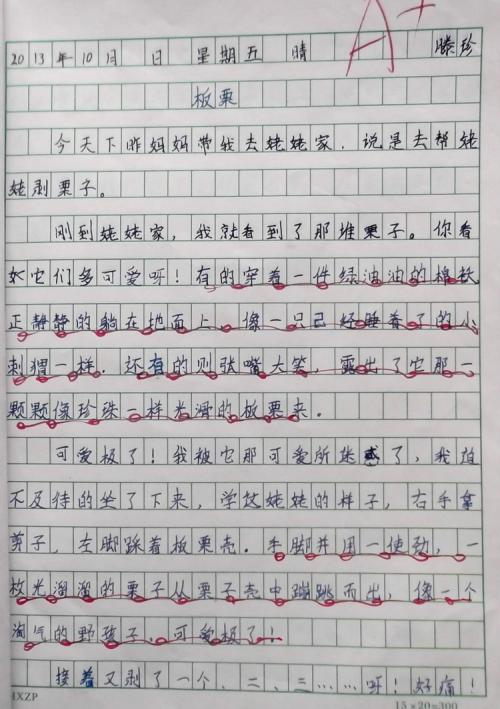 A+
2013年10月 日 星期五 晴 滕珍
板栗
今天下昨妈妈带我去姥姥家，说是去帮姥
姥剥栗子。
刚到姥姥家，我就看到了那堆栗子。你看
它们多可爱呀！有的穿着一件绿油油的棉袄
正静静的躺在地面上，像一只已经睡着了的小
刺猬一样。还有的则张嘴大笑，露出了它那一
颗颗像珍珠一样光滑的板栗来。
可爱极了！我被它那可爱所迷惑了，我迫
不及待的坐了下来，学这姥姥的样子，右手拿
剪子，左脚踩着板栗壳。手脚并用一使劲，一
枚光溜溜的栗子从栗子壳中蹦跳而出，像一个
淘气的野孩子，可爱极了！
接着又剥了一个、二、三……呀！好痛！
IXZP 15×20=300